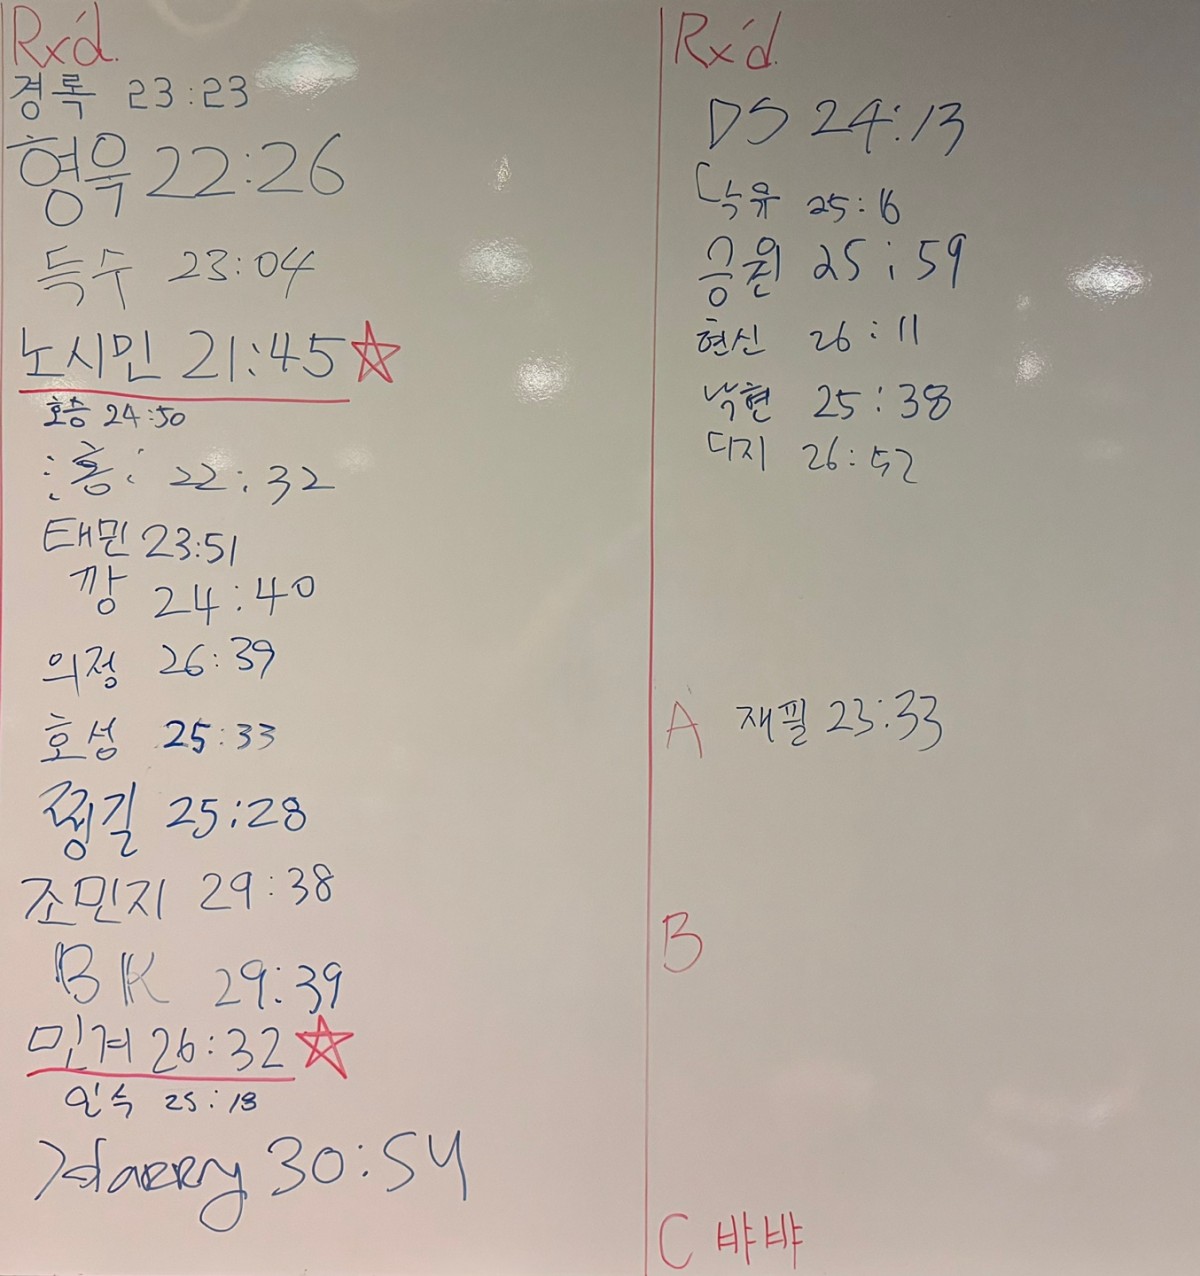 Rx'd.
경록 23:23
형욱 22:26
득수 23:04
노시민 21:45
호승 24:50
홍 22:32
태민 23:51
깡 24:40
의정 26:39
호성 25:33
찡길 25:28
조민지 29:38
BK 29:39
민겨 26:32
인숙 25:18
Harry 30:54
Rx'd.
DS 24:13
낙유 25:16
승원 25:59
현신 26:11
낙현 25:38
디지 26:52
A 재필 23:33
B
C 뱌뱌